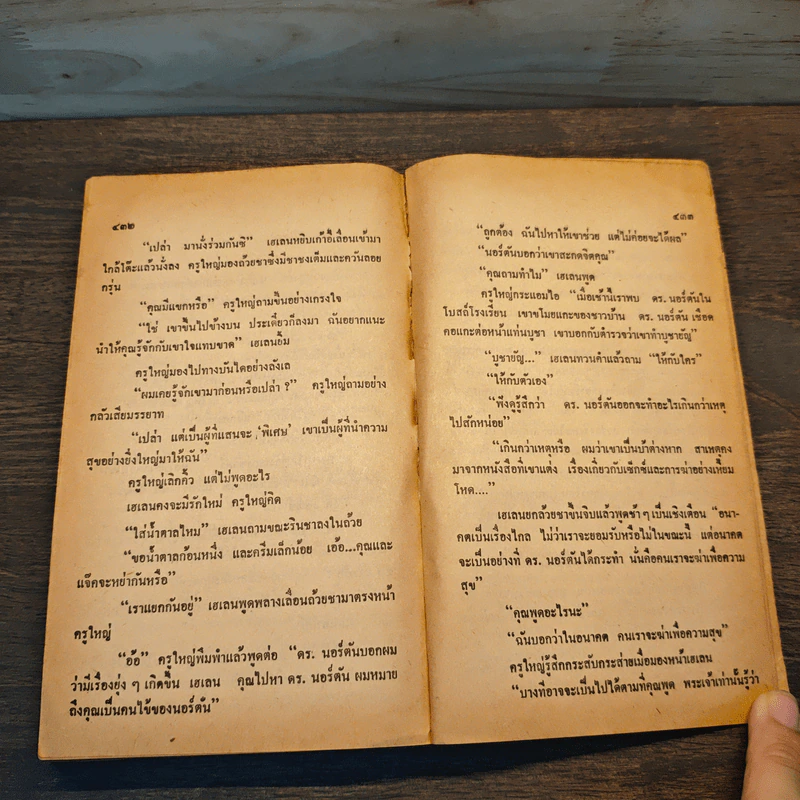 ๔๓๒
“เปล่า มานั่งร่วมกันซิ” เฮเลนหยิบเก้าอี้เลื่อนเข้ามา
ใกล้โต๊ะแล้วนั่งลง ครูใหญ่มองถ้วยชาซึ่งมีชาชงเต็มและควันลอย
กรุ่น
“คุณมีแขกหรือ” ครูใหญ่ถามขึ้นอย่างเกรงใจ
“ใช่ เขาขึ้นไปข้างบน ประเดี๋ยวก็ลงมา ฉันอยากแนะ
นำให้คุณรู้จักกับเขาใจแทบขาด” เฮเลนยิ้ม
ครูใหญ่มองไปทางบันไดอย่างลังเล
“ผมเคยรู้จักเขามาก่อนหรือเปล่า ?” ครูใหญ่ถามอย่าง
กลัวเสียมรรยาท
“เปล่า แต่เป็นผู้ที่แสนจะ ‘พิเศษ’ เขาเป็นผู้ที่นำความ
สุขอย่างยิ่งใหญ่มาให้ฉัน”
ครูใหญ่เลิกคิ้ว แต่ไม่พูดอะไร
เฮเลนคงจะมีรักใหม่ ครูใหญ่คิด
“ใส่น้ำตาลไหม” เฮเลนถามขณะรินชาลงในถ้วย
“ขอน้ำตาลก้อนหนึ่ง และครีมเล็กน้อย เอ้อ...คุณและ
แจ๊คจะหย่ากันหรือ”
“เราแยกกันอยู่” เฮเลนพูดพลางเลื่อนถ้วยชามาตรงหน้า
ครูใหญ่
“อ้อ” ครูใหญ่พึมพำแล้วพูดต่อ “ดร. นอร์ตันบอกผม
ว่ามีเรื่องยุ่ง ๆ เกิดขึ้น เฮเลน คุณไปหา ดร. นอร์ตัน ผมหมาย
ถึงคุณเป็นคนไข้ของนอร์ตัน”
๔๓๓
“ถูกต้อง ฉันไปหาให้เขาช่วย แต่ไม่ค่อยจะได้ผล”
“นอร์ตันบอกว่าเขาสะกดจิตคุณ”
“คุณถามทำไม” เฮเลนพูด
ครูใหญ่กระแอมไอ “เมื่อเช้านี้เราพบ ดร. นอร์ตันใน
โบสถ์โรงเรียน เขาขโมยแกะของชาวบ้าน ดร. นอร์ตัน เชือด
คอแกะต่อหน้าแท่นบูชา เขาบอกกับตำรวจว่าเขาทำบูชายัญ”
“บูชายัญ...” เฮเลนทวนคำแล้วถาม “ให้กับใคร”
“ให้กับตัวเอง”
“ฟังดูรู้สึกว่า ดร. นอร์ตันออกจะทำอะไรเกินกว่าเหตุ
ไปสักหน่อย”
“เกินกว่าเหตุหรือ ผมว่าเขาเป็นบ้าต่างหาก สาเหตุคง
มาจากหนังสือที่เขาแต่ง เรื่องเกี่ยวกับเซ็กซ์และการฆ่าอย่างเหี้ยม
โหด....”
เฮเลนยกถ้วยชาขึ้นจิบแล้วพูดช้า ๆ เป็นเชิงเตือน “อนา-
คตเป็นเรื่องไกล ไม่ว่าเราจะยอมรับหรือไม่ในขณะนี้ แต่อนาคต
จะเป็นอย่างที่ ดร. นอร์ตันได้กระทำ นั่นคือคนเราจะฆ่าเพื่อความ
สุข”
“คุณพูดอะไรนะ”
“ฉันบอกว่าในอนาคต คนเราจะฆ่าเพื่อความสุข”
ครูใหญ่รู้สึกกระสับกระส่ายเมื่อมองหน้าเฮเลน
“บางทีอาจจะเป็นไปได้ตามที่คุณพูด พระเจ้าเท่านั้นรู้ว่า